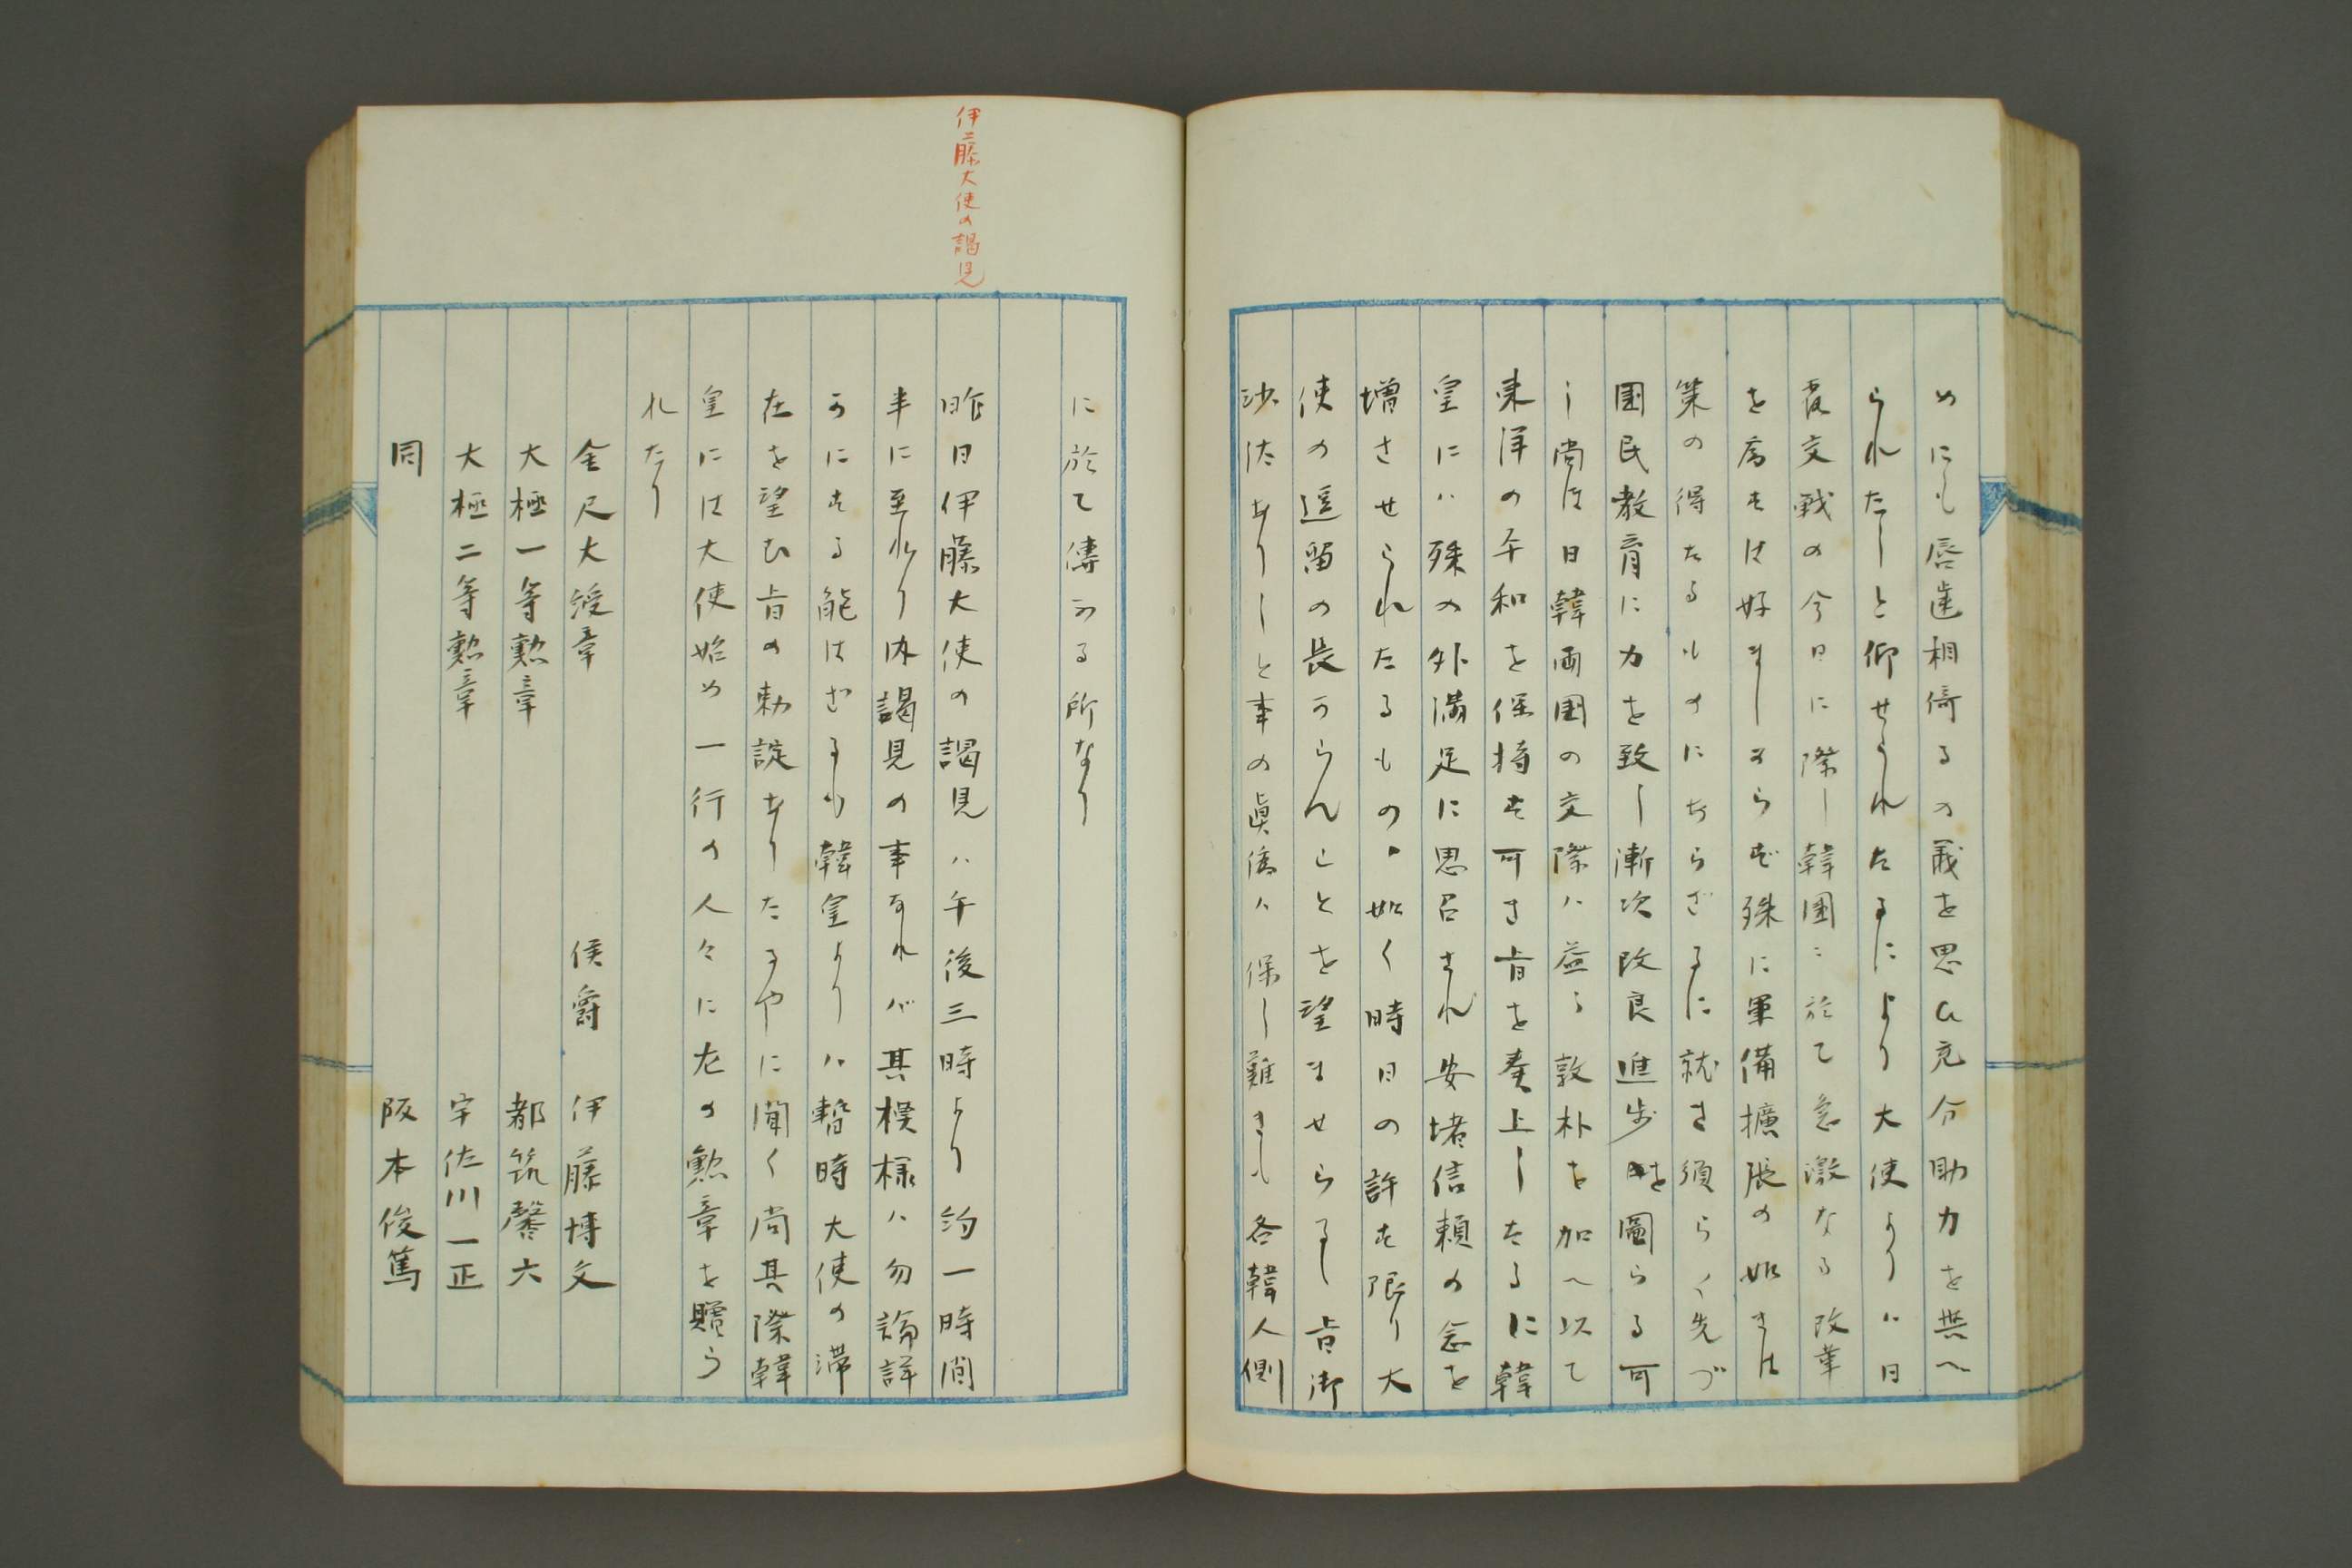 めにも唇歯相倚るの義を思ひ充分助力を與へ
られたしと仰せられたるにより大使よりハ日
露交戦の今日に際し韓国に於て急激なる改革
を為すは好ましからず殊に軍備擴張の如きは
策の得たるものにあらざるに就き須らく先づ
国民教育に力を致し漸次改良進歩を圖らる可
し尚ほ日韓両国の交際ハ益々敦朴を加へ以て
東洋の平和を保持す可き旨を奏上したるに韓
皇にハ殊の外満足に思召され安堵信頼の念を
増させられたるものゝ如く時日の許す限り大
使の逗留の長からんことを望ませらるゝ旨御
沙汰ありしと事の眞偽ハ保し難きも各韓人側
に於て傳ふる所なり
伊藤大使の謁見
昨日伊藤大使の謁見ハ午後三時より約一時間
半に至れり内謁見の事なれバ其模様ハ勿論詳
かにする能はざるも韓皇よりハ暫時大使の滞
在を望む旨の勅諚ありたるやに聞く尚其際韓
皇には大使始め一行の人々に左の勲章を贈ら
れたり
金尺大綬章 侯爵 伊藤博文
大極一等勲章 都筑馨六
大極二等勲章 宇佐川一正
同 阪本俊篤